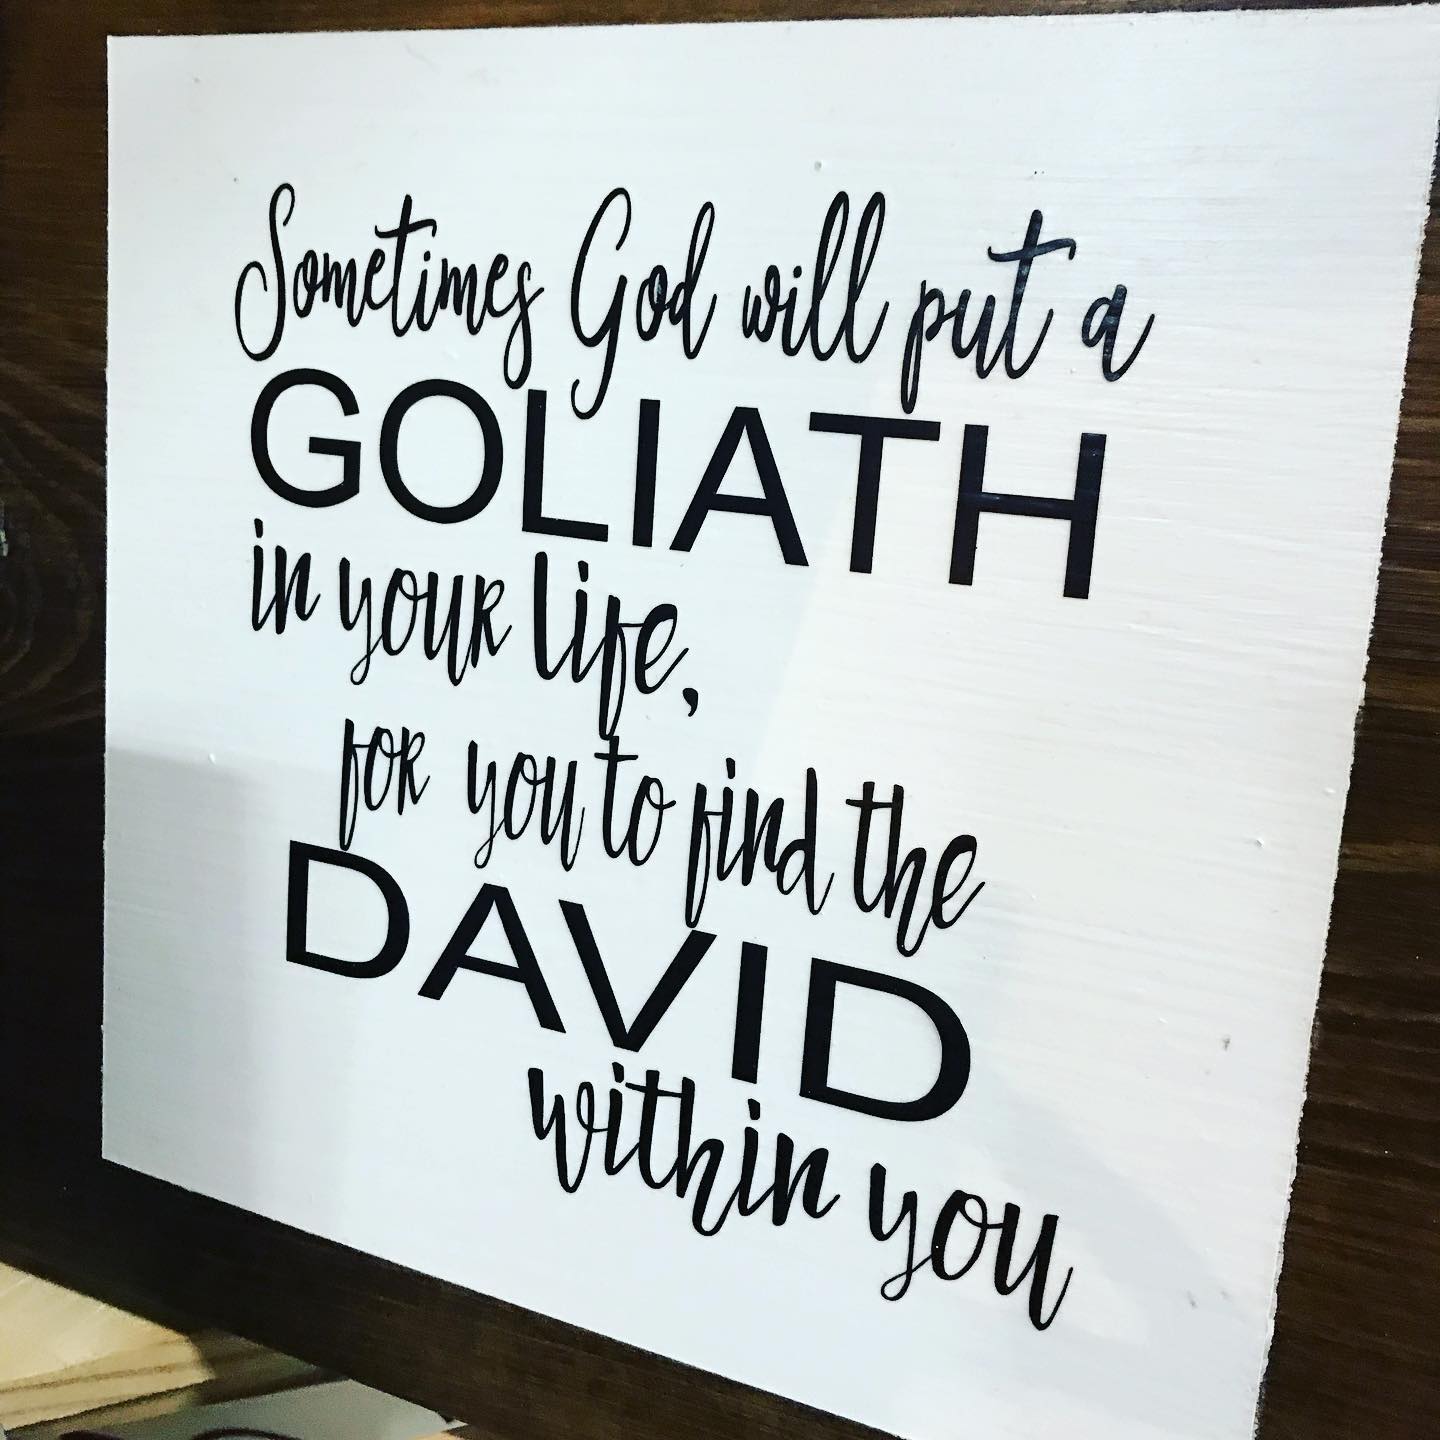 Sometimes God will put a
GOLIATH
in your life,
for you to find the
DAVID
within you